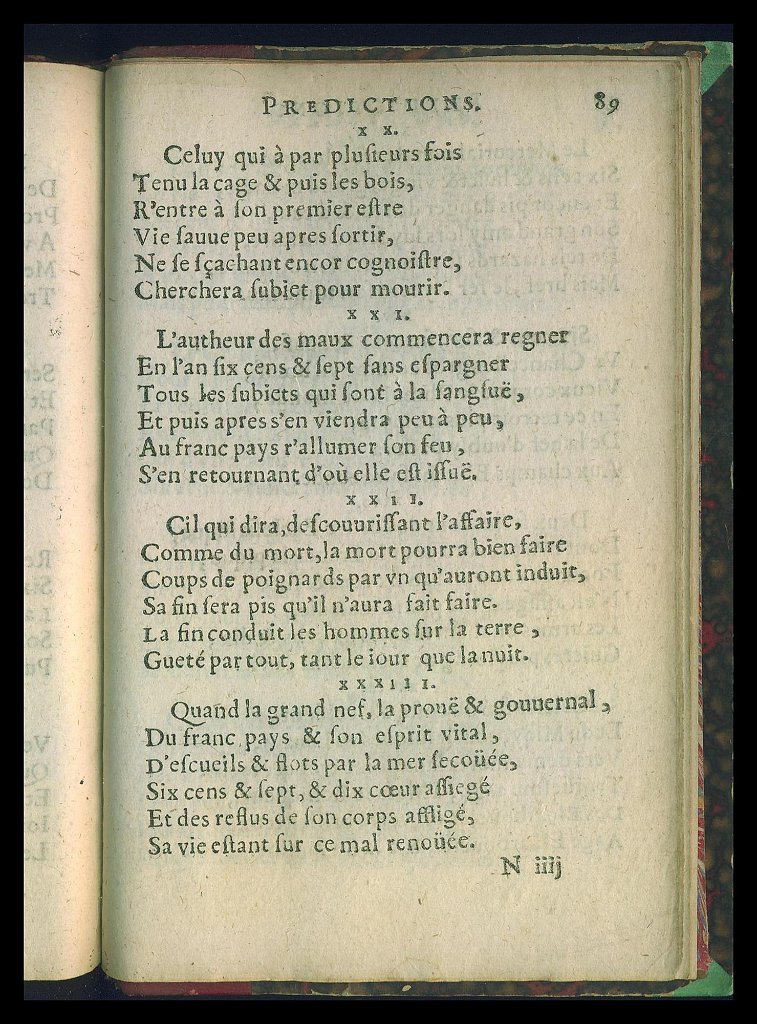 PREDICTIONS. 89
x x.
Celuy qui à par pluſieurs fois
Tenu la cage & puis les bois,
R'entre à ſon premier eſtre
Vie ſauue peu apres ſortir,
Ne ſe ſçachant encor cognoiſtre,
Cherchera ſubiet pour mourir.
x x i.
L'autheur des maux commencera regner
En l'an ſix cens & ſept ſans eſpargner
Tous les ſubiets qui ſont à la ſangſuë,
Et puis apres s'en viendra peu à peu,
Au franc pays r'allumer ſon feu,
S'en retournant d'où elle eſt iſſuë.
x x i i.
Cil qui dira, deſcouuriſſant l'affaire,
Comme du mort, la mort pourra bien faire
Coups de poignards par vn qu'auront induit,
Sa fin ſera pis qu'il n'aura fait faire.
La fin conduit les hommes ſur la terre,
Gueté par tout, tant le iour que la nuit.
x x x i i i.
Quand la grand nef, la prouë & gouuernal,
Du franc pays & ſon eſprit vital,
D'eſcueils & flots par la mer ſecoüée,
Six cens & ſept, & dix cœur aſſiegé
Et des reflus de ſon corps affligé,
Sa vie eſtant ſur ce mal renoüée.
N iiij